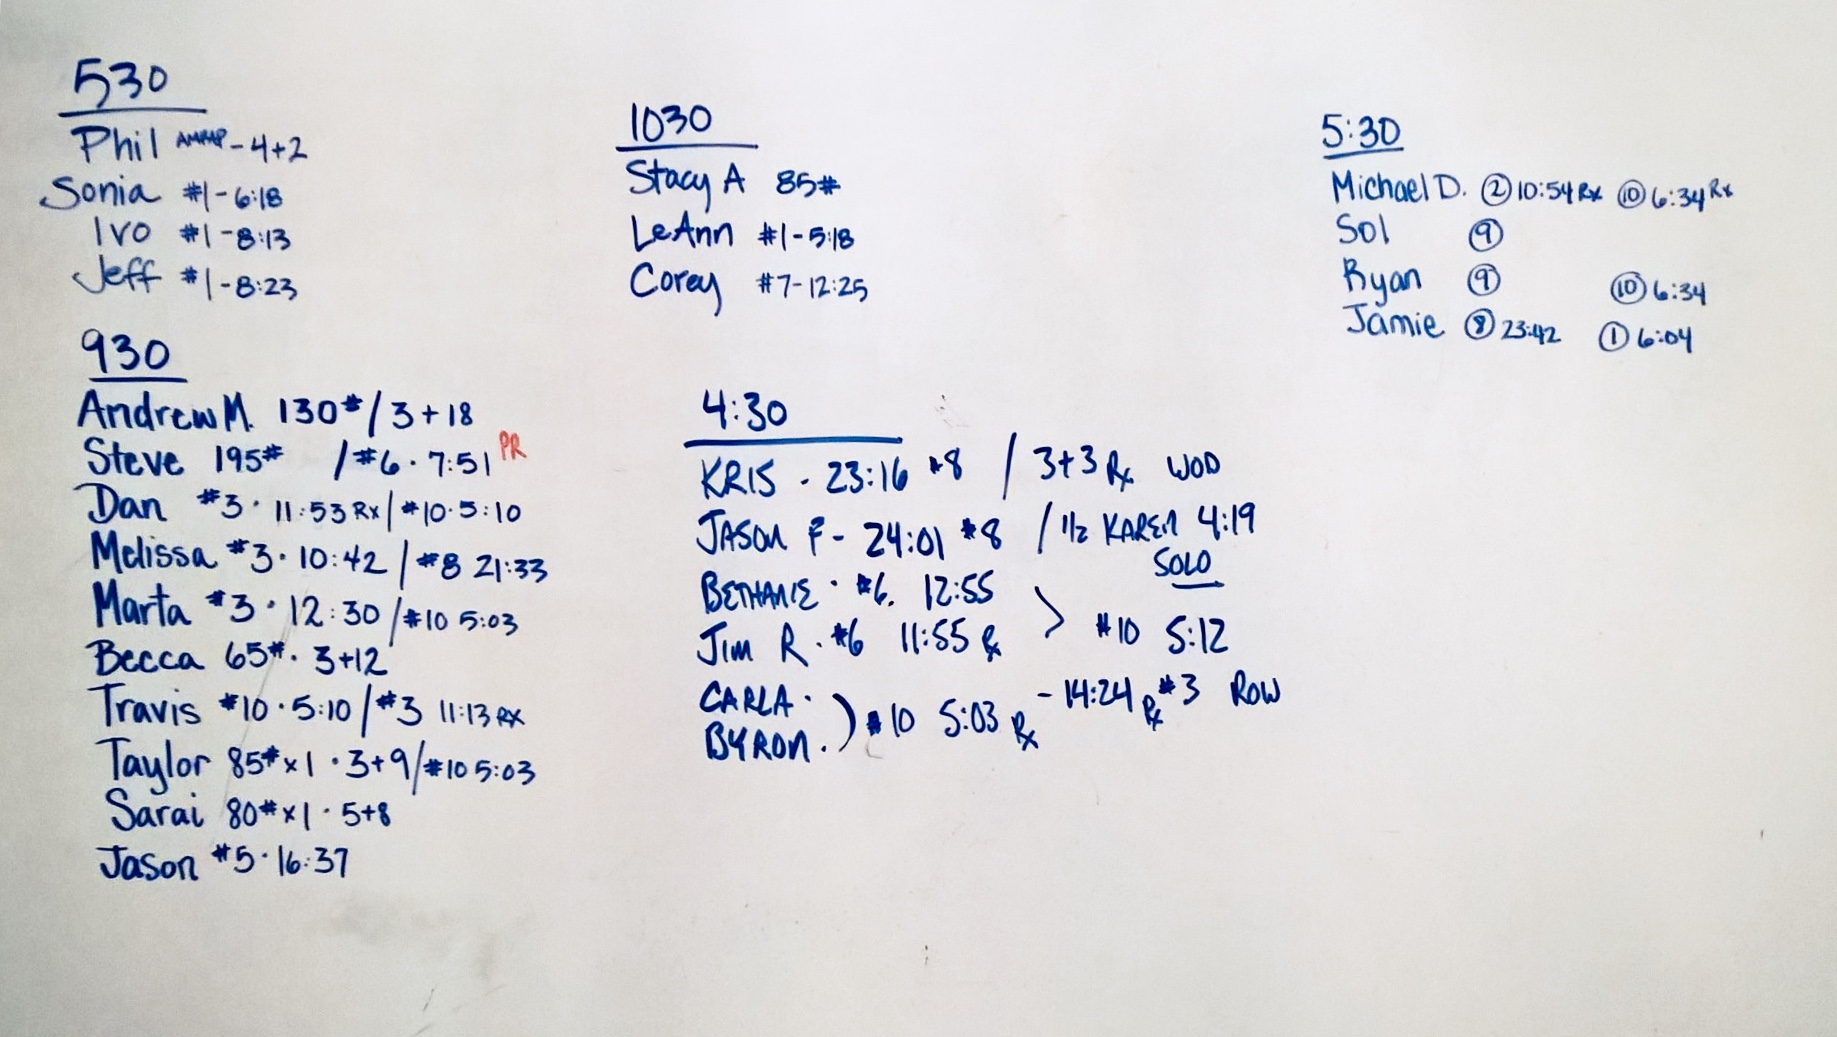 530
Phil AMRAP - 4+2
Sonia #1 - 6:18
Ivo #1 - 8:13
Jeff #1 - 8:23
930
Andrew M. 130# / 3 + 18
Steve 195# / #6 · 7:51 PR
Dan #3 · 11:53 Rx / #10 · 5:10
Melissa #3 · 10:42 / #8 21:33
Marta #3 · 12:30 / #10 5:03
Becca 65# · 3+12
Travis #10 · 5:10 / #3 11:13 RX
Taylor 85# x 1 · 3+9 / #10 5:03
Sarai 80# x 1 · 5+8
Jason #5 · 16:37
1030
Stacy A 85#
LeAnn #1 - 5:18
Corey #7 - 12:25
4:30
KRIS - 23:16 #8 / 3+3 Rx WOD
JASON F - 24:01 #8 / 1/2 KAREN 4:19
SOLO
BETHANIE · #6. 12:55
JIM R. #6 11:55 Rx > #10 5:12
CARLA ·
BYRON . ) #10 5:03 Rx - 14:24 Rx #3 ROW
5:30
Michael D. ② 10:54 Rx ⑩ 6:34 Rx
Sol ⑨
Ryan ⑨ ⑩ 6:34
Jamie ⑧ 23:42 ① 6:04